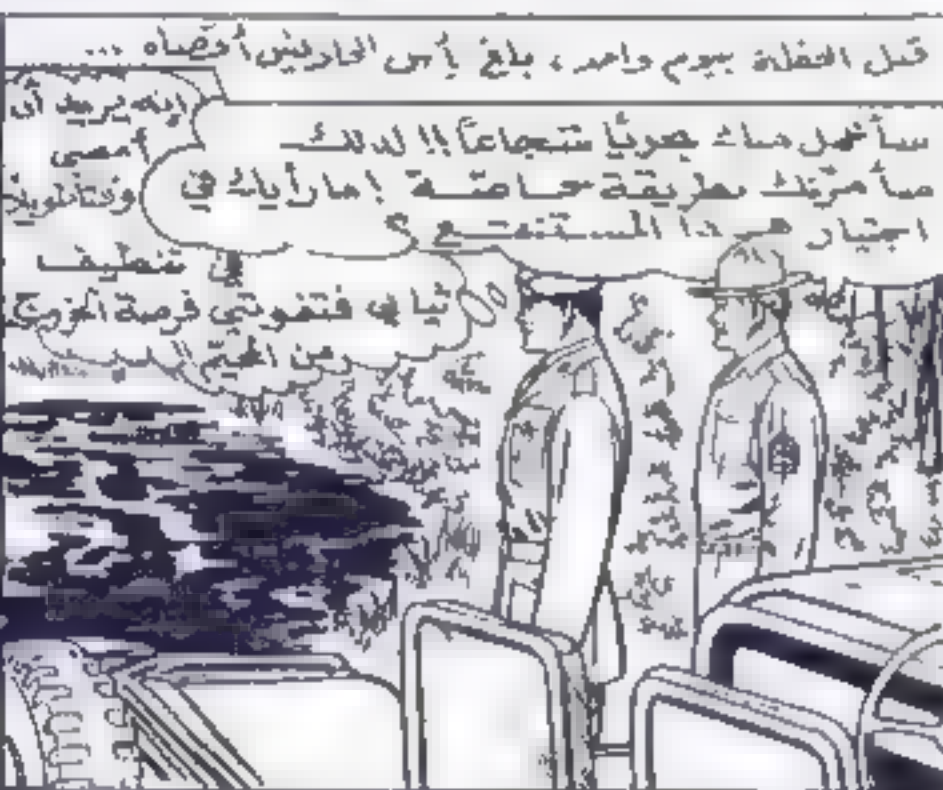 قبل الحفلة بيوم واحد، بلغ يأس الحارقين أقصاه ...
سأجعل منك بحريًا شجاعًا!! لذلك
سأمرّنك بطريقة خاصة! ما رأيك في
اجتياز هذا المستنقع؟
إنه يريد أن
أمضي
وقتًا طويلاً
في تنظيف
ثيابي فتفوتني فرصة الخروج
من الحيّ